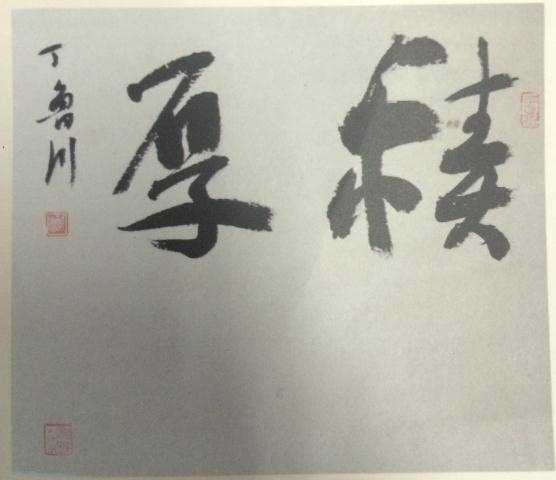 積厚
丁魯川